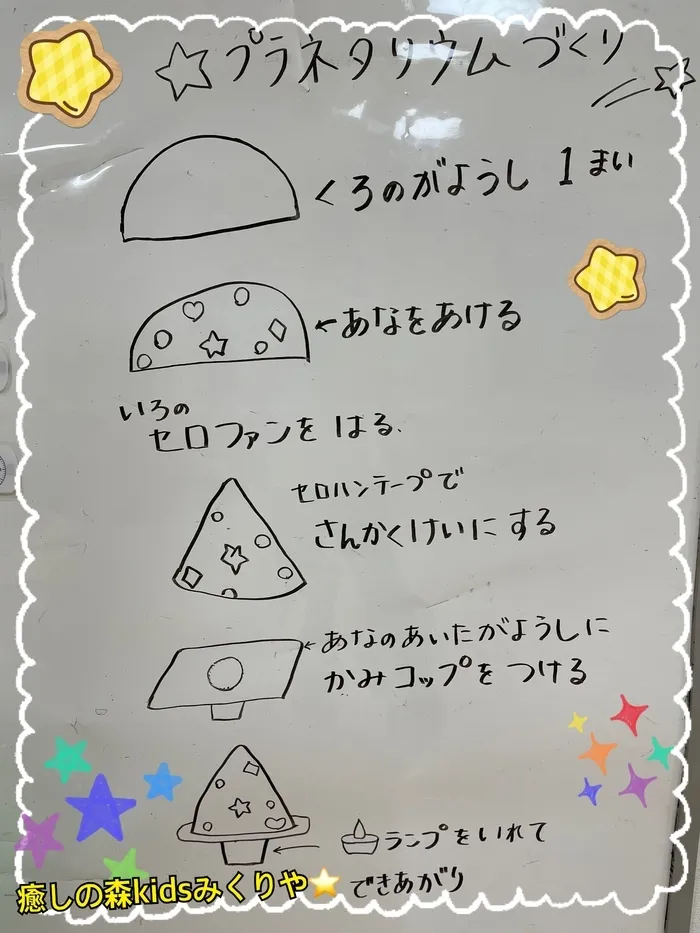 ☆プラネタリウムづくり☆
くろのがようし 1まい
←あなをあける
いろの
セロファンを はる.
セロハンテープで
さんかくけいに する
←あなのあいたがようしに
かみコップを つける
←ランプをいれて
できあがり
癒しの森kidsみくりや⭐